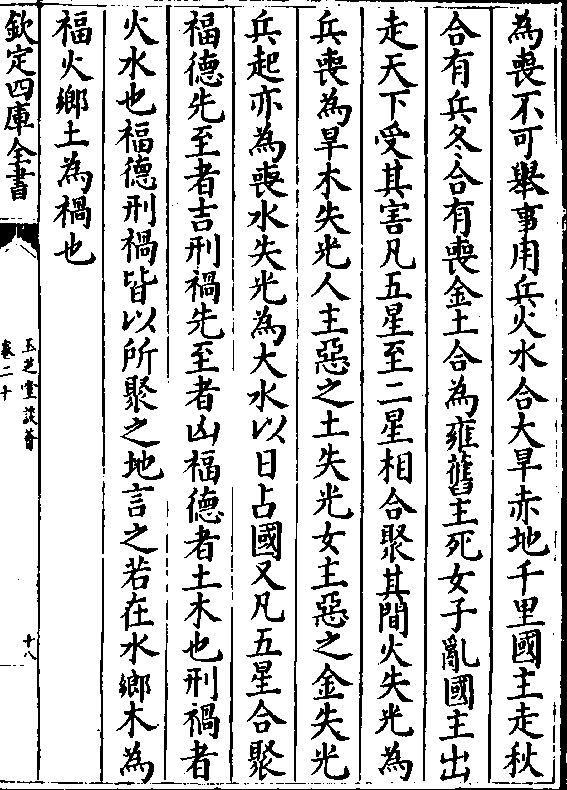 為喪不可舉事用兵火水合大旱赤地千里國主走秋
合有兵冬合有喪金土合為雍舊主死女子亂國主出
走天下受其害凡五星至二星相合聚其間火失光為
兵喪為旱木失光人主惡之土失光女主惡之金失光
兵起亦為喪水失光為大水以日占國又凡五星合聚
福德先至者吉刑禍先至者凶福德者土木也刑禍者
火水也福德刑禍皆以所聚之地言之若在水鄉木為
福火鄉土為禍也
欽定四庫全書
玉芝堂談薈
卷二十
十八